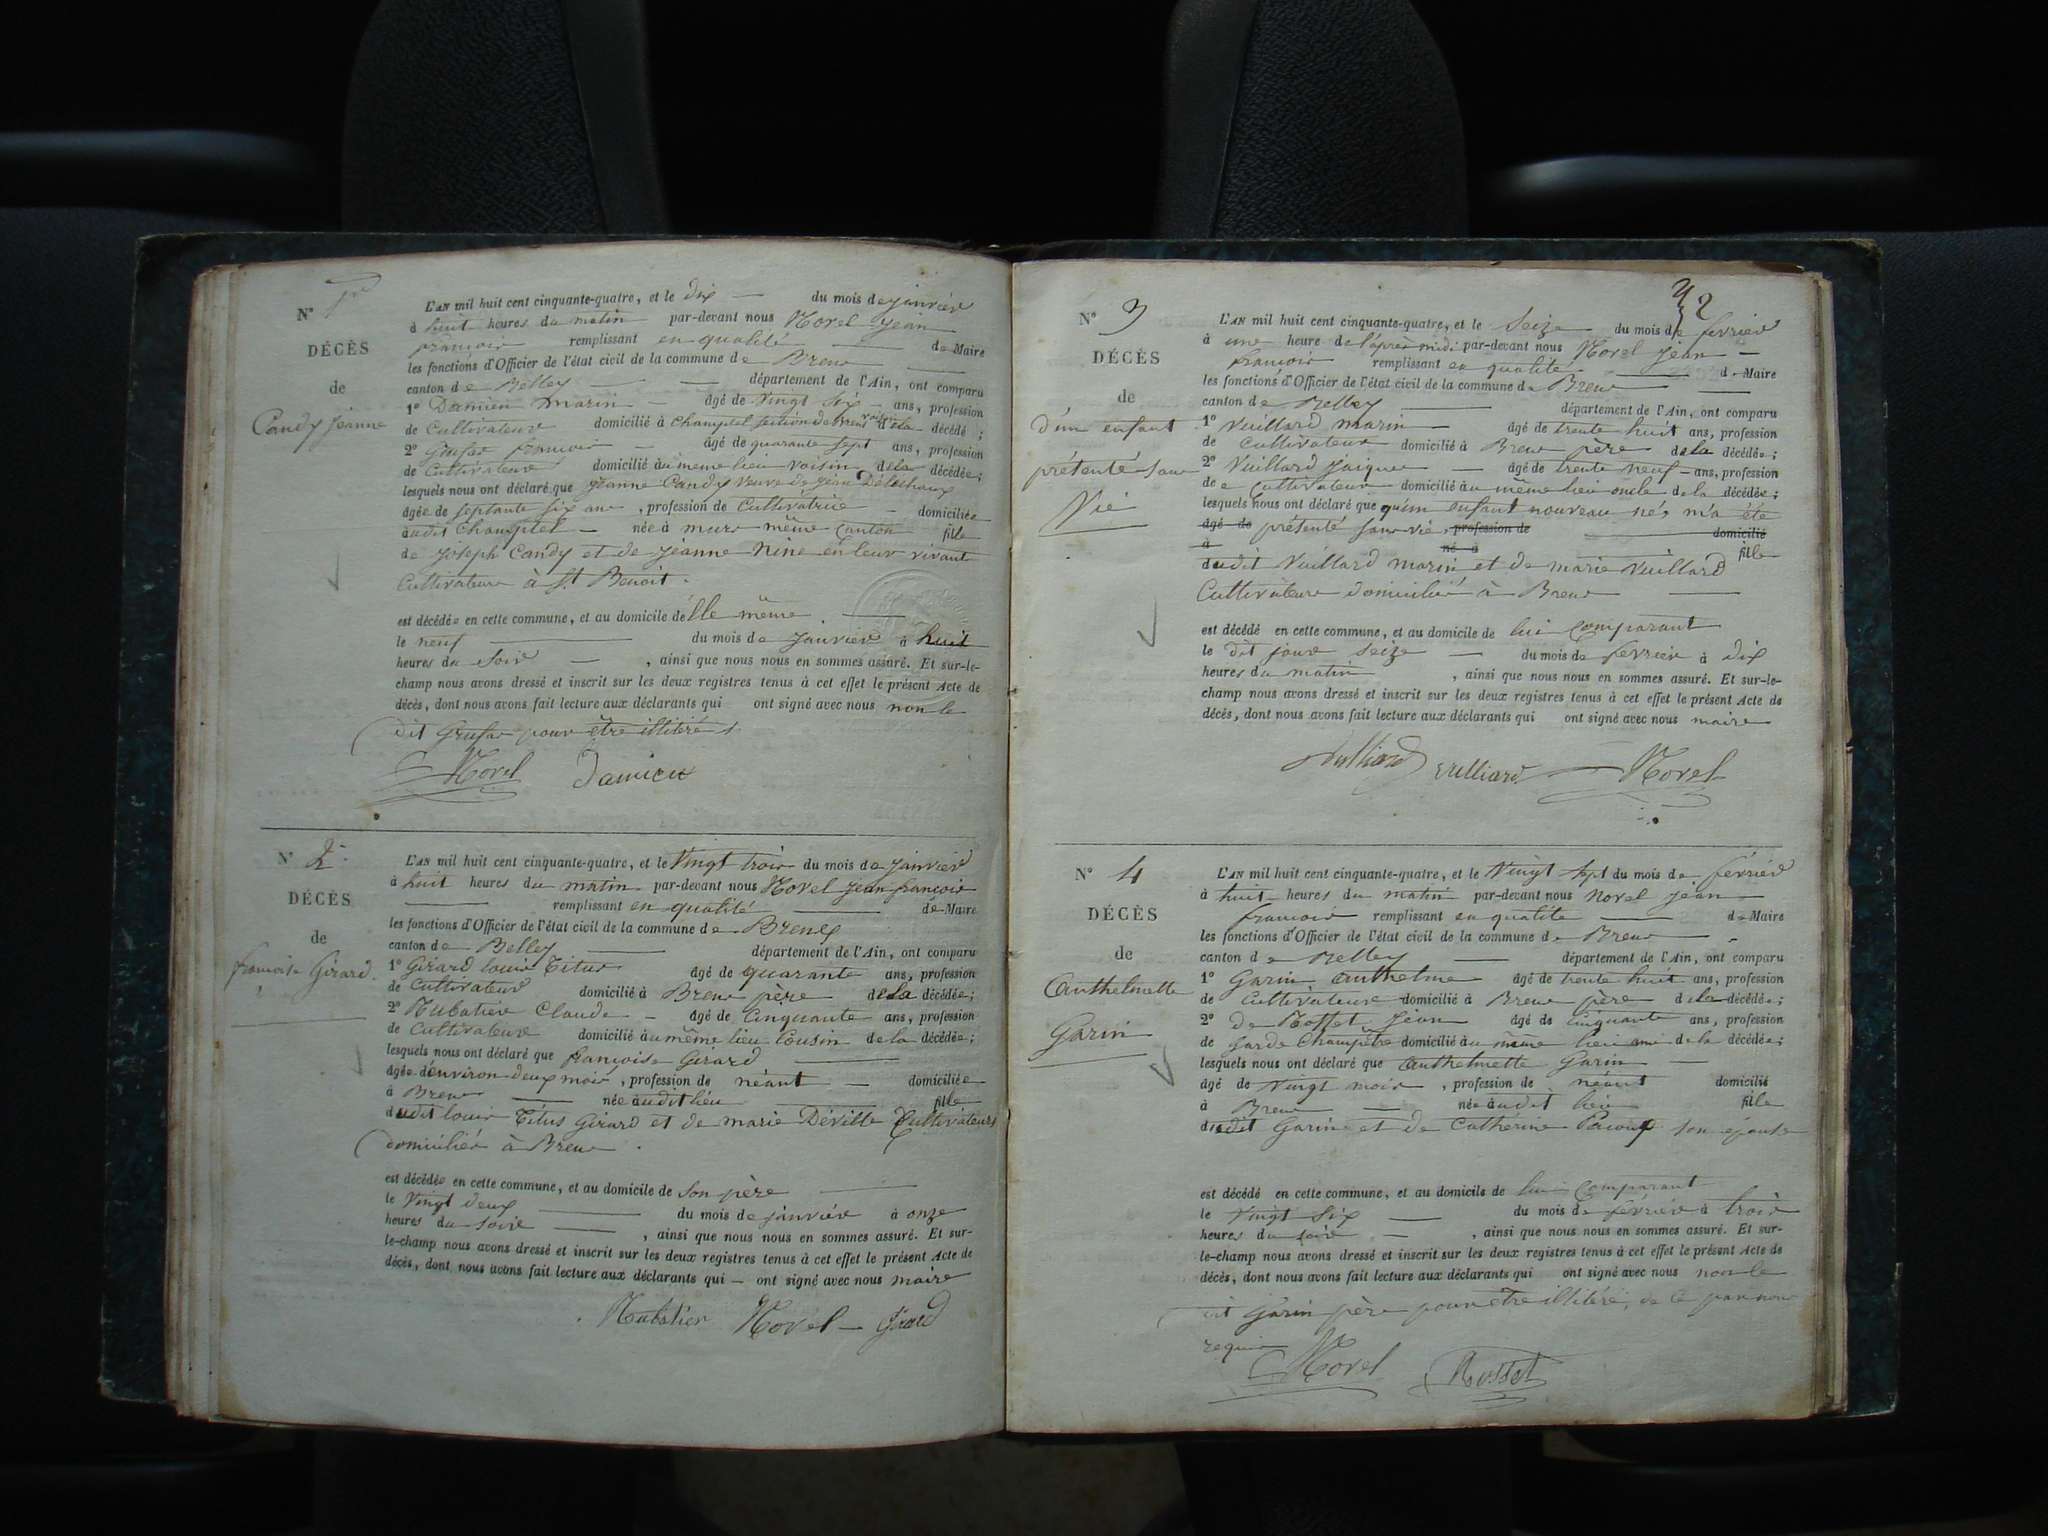 N° 1er
DÉCÈS
de
Candy Jeanne
L'AN mil huit cent cinquante-quatre, et le dix — du mois de janvier
à huit heures du matin par-devant nous Morel Jean
françois remplissant en qualité — de Maire
les fonctions d'Officier de l'état civil de la commune de Brens
canton de Belley — département de l'Ain, ont comparu
1° Damien marin — âgé de vingt six — ans, profession
de Cultivateur domicilié à champtel section de Brens voisin de la décédé ;
2° françois — âgé de quarante sept ans, profession
de Cultivateur domicilié au même lieu voisin de la décédée;
lesquels nous ont déclaré que Jeanne Candy veuve de Jean
âgée de septante six ans, profession de Cultivatrice — domiciliée
audit Champtel — née à murs même canton fille
de Joseph Candy et de Jeanne Nine en leur vivant
Cultivateurs à St Benoit.
est décédée en cette commune, et au domicile d'elle même —
le neuf — du mois de Janvier à huit
heures du soir — , ainsi que nous nous en sommes assuré. Et sur-le-
champ nous avons dressé et inscrit sur les deux registres tenus à cet effet le présent Acte de
décès, dont nous avons fait lecture aux déclarants qui ont signé avec nous non le
dit pour être illitéré
Morel Damien
N° 2
DÉCÈS
de
françoise Girard.
L'AN mil huit cent cinquante-quatre, et le Vingt trois du mois de janvier
à huit heures du matin par-devant nous Morel Jean françois
— remplissant en qualité — de Maire
les fonctions d'Officier de l'état civil de la commune de Brens
canton de Belley — département de l'Ain, ont comparu
1° Girard louis Titus âgé de quarante ans, profession
de Cultivateur domicilié à Brens père de la décédée;
2° Rubatier Claude — âgé de Cinquante ans, profession
de Cultivateur domicilié au même lieu Cousin de la décédée;
lesquels nous ont déclaré que françoise Girard —
âgée d'environ deux mois, profession de néant — domiciliée
à Brens — née audit lieu — fille
dudit louis Titus Girard et de marie Déville Cultivateurs
domiciliés à Brens.
est décédée en cette commune, et au domicile de son père —
le Vingt deux — du mois de janvier à onze
heures du soir — , ainsi que nous nous en sommes assuré. Et sur-
le-champ nous avons dressé et inscrit sur les deux registres tenus à cet effet le présent Acte de
décès, dont nous avons fait lecture aux déclarants qui — ont signé avec nous maire
Rubatier Morel Girard
N° 3
DÉCÈS
de
d'un enfant
présenté sans
Vie
L'AN mil huit cent cinquante-quatre, et le seize du mois de fevrier
à une heure de l'après midi par-devant nous Morel Jean —
françois remplissant en qualité — de Maire
les fonctions d'Officier de l'état civil de la commune de Brens —
canton de Belley — département de l'Ain, ont comparu
1° Vuillard marin — âgé de trente huit ans, profession
de Cultivateur domicilié à Brens père de la décédée;
2° Vuillard jacques — âgé de trente neuf — ans, profession
de Cultivateur domicilié au même lieu oncle de la décédée;
lesquels nous ont déclaré que qu'un enfant nouveau né, m'a été
âgé de présenté sans vie, profession de — domicilié
à né à fille
dudit Vuillard marin et de marie Vuillard
Cultivateurs domiciliés à Brens —
est décédé en cette commune, et au domicile de lui comparant
le dit jour seize — du mois de fevrier à dix
heures du matin , ainsi que nous nous en sommes assuré. Et sur-le-
champ nous avons dressé et inscrit sur les deux registres tenus à cet effet le présent Acte de
décès, dont nous avons fait lecture aux déclarants qui ont signé avec nous maire
Vulliard Vulliard Morel
N° 4
DÉCÈS
de
Anthelmette
Garin
L'AN mil huit cent cinquante-quatre, et le Vingt sept du mois de février
à huit heures du matin par-devant nous Morel Jean
françois remplissant en qualité — de Maire
les fonctions d'Officier de l'état civil de la commune de Brens —
canton de Belley — département de l'Ain, ont comparu
1° Garin Anthelme âgé de trente huit ans, profession
de Cultivateur domicilié à Brens père de la décédée;
2° de Rosset Jean âgé de cinquante ans, profession
de Garde Champêtre domicilié au même lieu ami de la décédée;
lesquels nous ont déclaré que Anthelmette Garin —
âgé de vingt mois , profession de néant domicilié
à Brens — née audit lieu fille
dudit Garin et de Catherine son epouse
est décédé en cette commune, et au domicile de lui comparant
le vingt six — du mois de février à trois
heures du soir — , ainsi que nous nous en sommes assuré. Et sur-
le-champ nous avons dressé et inscrit sur les deux registres tenus à cet effet le présent Acte de
décès, dont nous avons fait lecture aux déclarants qui ont signé avec nous non le
dit Garin père pour être illitéré, de ce par nous
requis
Morel Rosset